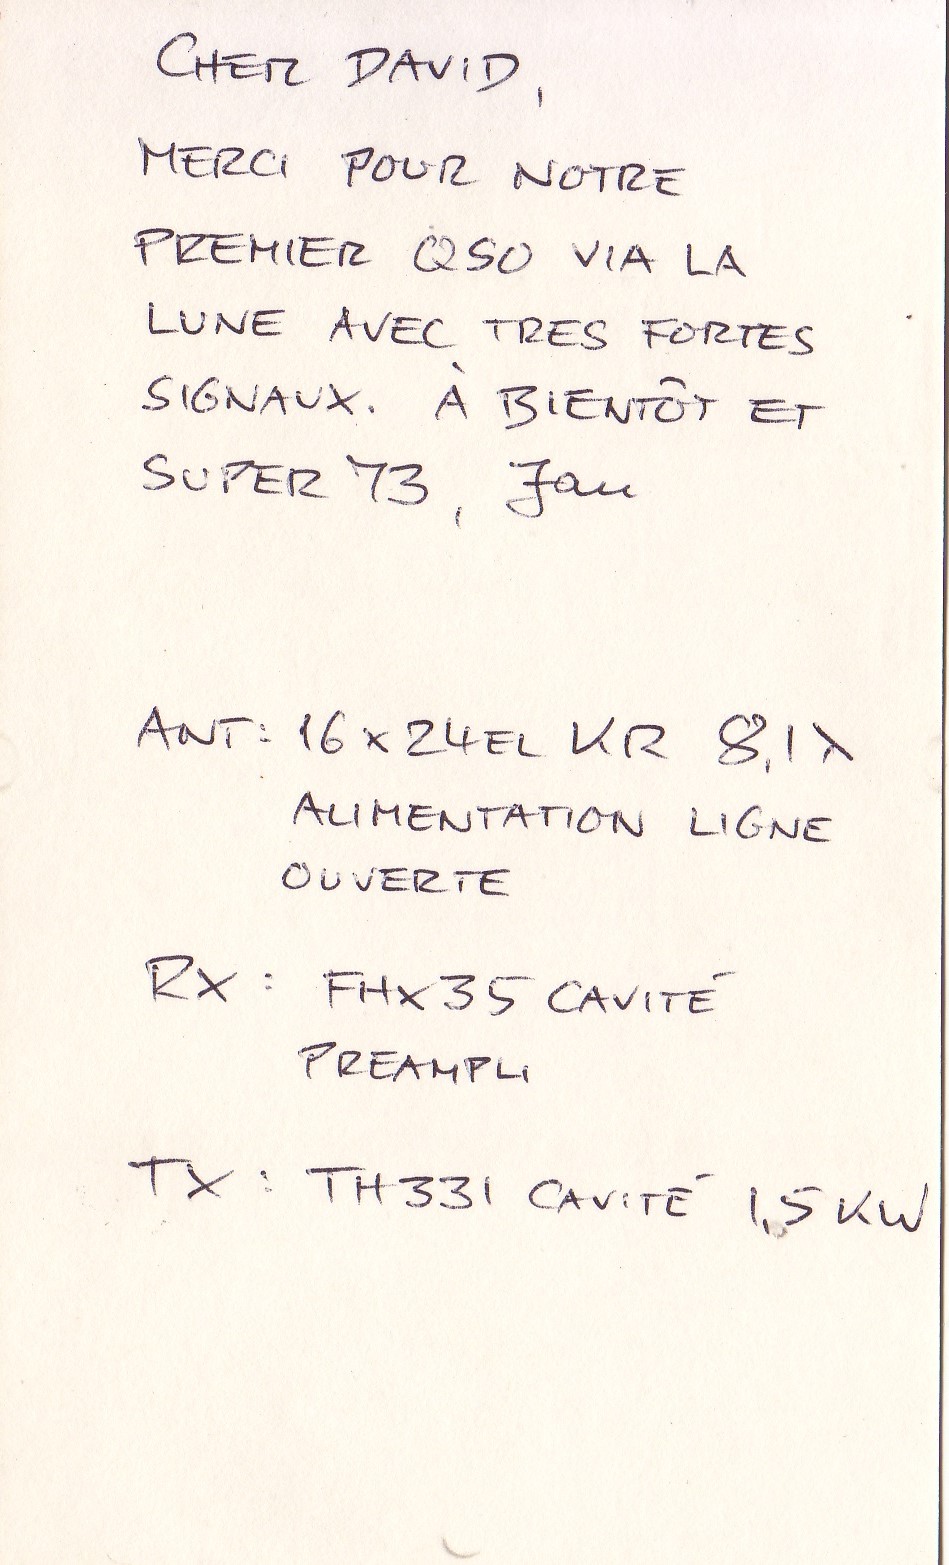 CHER DAVID,
MERCI POUR NOTRE
PREMIER QSO VIA LA
LUNE AVEC TRES FORTES
SIGNAUX. À BIENTÔT ET
SUPER 73, Jan
ANT: 16x24EL KR 8,1λ
ALIMENTATION LIGNE
OUVERTE
RX: FHX35 CAVITÉ
PREAMPLI
TX: TH331 CAVITÉ 1,5 KW